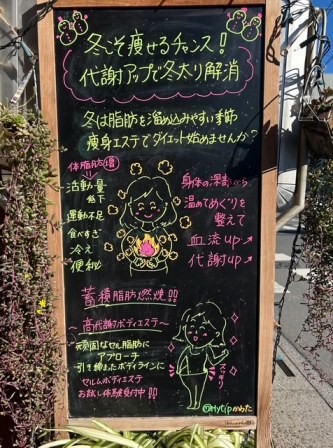 冬こそ痩せるチャンス!
代謝アップで冬太り解消
冬は脂肪を溜め込みやすい季節
痩身エステでダイエット始めませんか?
体脂肪増
活動量
低下
運動不足
食べすぎ
冷え
便秘
身体の深部から
温めてめぐりを
整えて
血流up↗
代謝up↗
蓄積脂肪燃焼!!
~高代謝ボディエステ~
頑固なセル脂肪に
アプローチ
引き締まったボディラインに
セルムボディエステ
お試し体験受付中!!
Hytipかわた